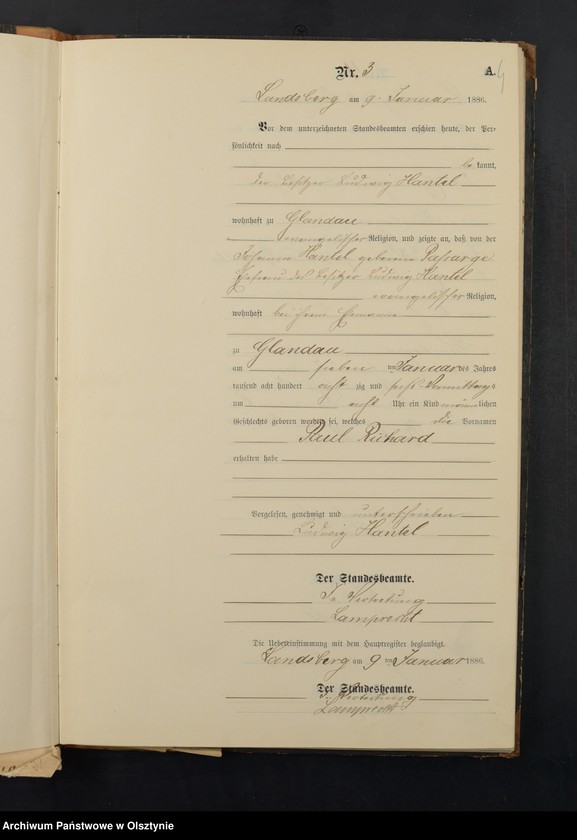 Nr. 3
A. 4
Landsberg am 9. Januar 1886.
Vor dem unterzeichneten Standesbeamten erschien heute, der Per-
sönlichkeit nach
be kannt,
der Besitzer Ludwig Hantel
wohnhaft zu Glandau
evangelischer Religion, und zeigte an, daß von der
Johanna Hantel geborene Passarge
Ehefrau des Besitzer Ludwig Hantel
evangelischer Religion,
wohnhaft bei ihrem Ehemanne
zu Glandau
am sieben ten Januar des Jahres
tausend acht hundert acht zig und sechs Vormittags
um acht Uhr ein Kind männlichen
Geschlechts geboren worden sei, welches die Vornamen
Paul Richard
erhalten habe
Vorgelesen, genehmigt und unterschrieben
Ludwig Hantel
Der Standesbeamte.
In Vertretung
Lamprecht
Die Uebereinstimmung mit dem Hauptregister beglaubigt.
Landsberg am 9 ten Januar 1886.
Der Standesbeamte.
In Vertretung
Lamprecht
Archiwum Państwowe w Olsztynie